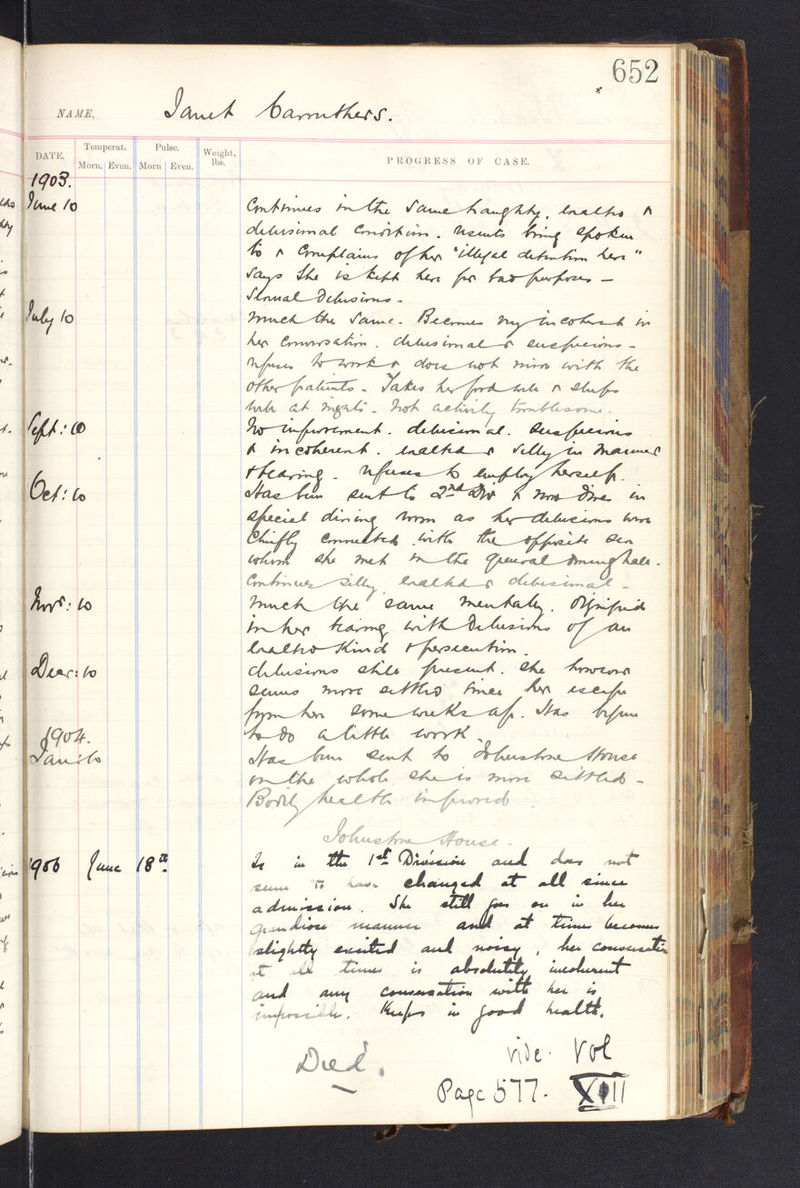 652
NAME, Janet Carruthers.
DATE. Temperat. Pulse. Weight, lbs. PROGRESS OF CASE.
Morn. Even. Morn Even.
1903.
June 10 Continues in the same haughty, exalted &
delusional condition. resents being spoken
to & complains of her "illegal detention here"
says she is kept here for bad purposes —
Sexual Delusions —
July 10 Much the same. Becomes very incoherent in
her conversation. delusional & suspicious —
refuses to work & does not mix with the
other patients. Takes her food well & sleeps
well at nights. Not actively troublesome.
Sept: 10 No improvement. delusional. suspicious
& incoherent. exalted & silly in manner
& bearing. refuses to employ herself.
Oct: 10 Has been sent to 2nd Div & now dines in
special dining room as her delusions were
chiefly connected with the opposite sex
whom she met in the general dining hall.
Continues silly, exalted & delusional —
Novr: 10 Much the same mentally. Dignified
in her bearing with Delusions of an
exalted kind & persecution.
Decr: 10 delusions still present. She however
seems more settled since her escape
from here some weeks ago. Has begun
to do a little work.
1904.
Jan: 10 Has been sent to Johnstone House
on the whole she is more settled —
Bodily health improved.
Johnstone House.
1906 June 18th. Is in the 1st Division and does not
seem to have changed at all since
admission. She still goes on in her
grandiose manner and at times becomes
slightly excited and noisy, her conversation
at all times is absolutely incoherent
and any conversation with her is
impossible. Keeps in good health.
Died. vide. Vol
Page 577. XIII